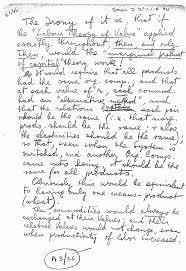 The Irony of it is, that if
the "Labour Theory of Value" applied
exactly throughout, then and only
then would the "marginal product
of capital" theory work!
It would require that all products
had the same org. comp.; and that
at each value of r, each commod.
had an alternative method; and
that the relative
should be the same (i.e. that marg.
prods. should be the same & also
the elasticities should be the same)
so that, when the System is
switched, and another Org. Comp.
came into being, it should be the
same for all products.
Obviously this would be equivalent
to having only one means of product
(wheat).
The commodities would always be
exchanged at their Values; and their
relative Values would not change, even
when productivity of labour increased.